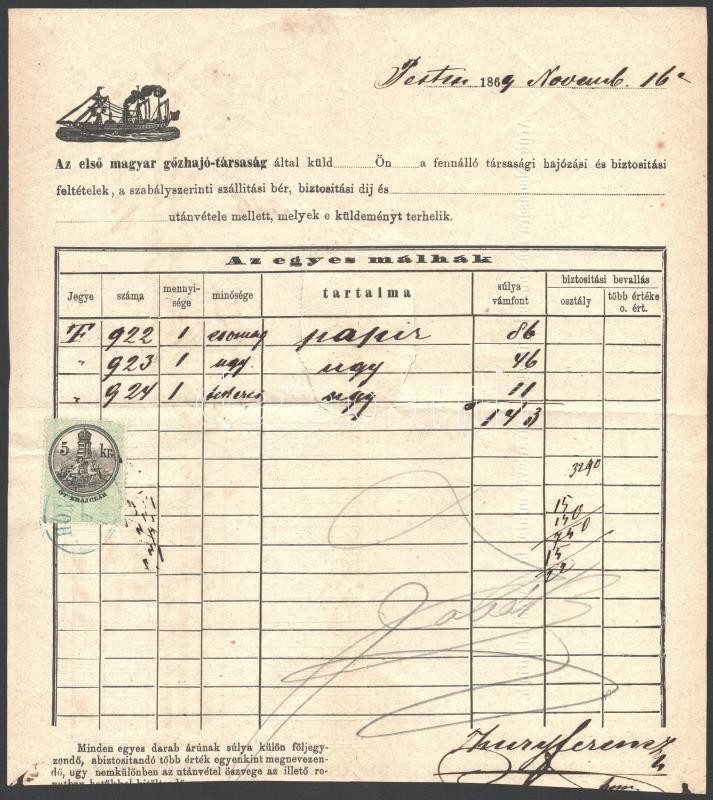 Pesten 1869 Novemb. 16
Az első magyar gőzhajó-társaság által küld Ön a fennálló társasági hajózási és biztositási
feltételek, a szabályszerinti szállitási bér, biztositási dij és
utánvétele mellett, melyek e küldeményt terhelik.
Az egyes málhák
Jegye száma mennyi-sége minősége tartalma súlya vámfont biztositási bevallás
osztály több értéke o. ért.
F 922 1 csomag papir 86
" 923 1 ugy ugy 46
" 924 1 ugy 11
143
5 kr.
ÖT KRAJCZÁR
3290
15
150
15
22
Minden egyes darab árúnak súlya külön följegy-
zendő, abiztositandó több érték egyenkint megnevezen-
dő, ugy nemkülönben az utánvétel öszvege az illető ro-